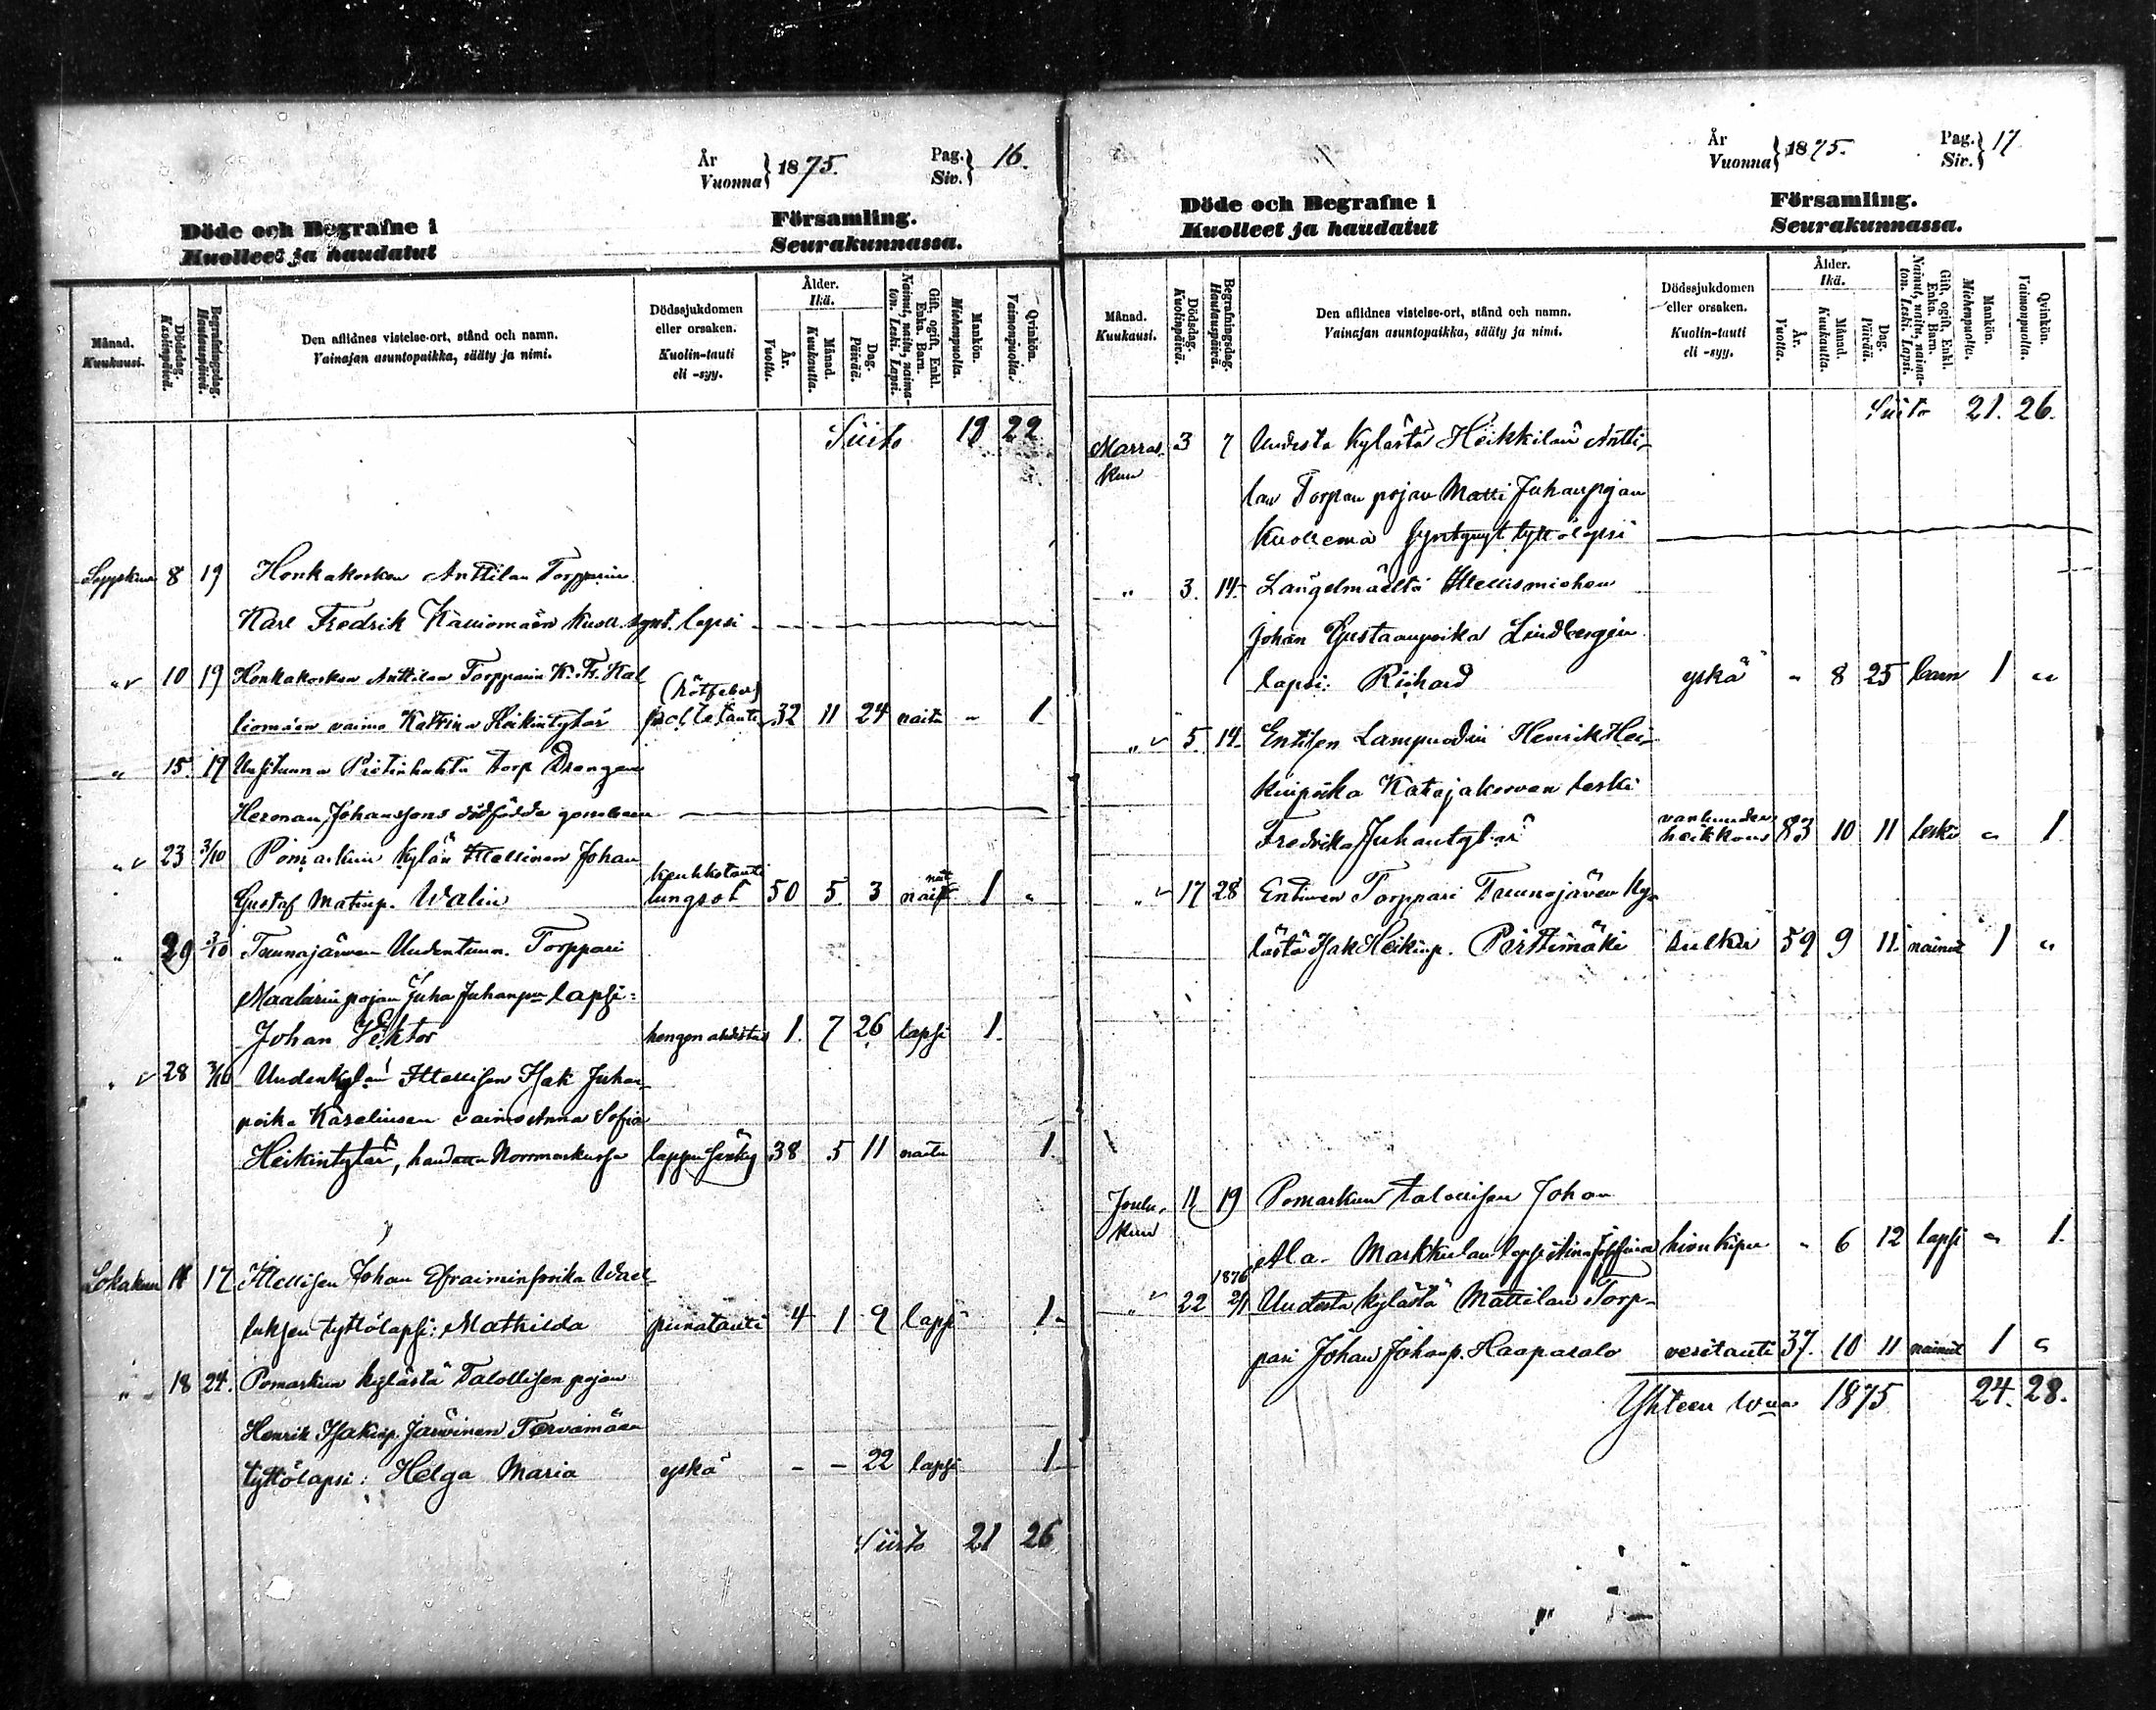 År
Vuonna } 1875. Pag.
Siv. } 16.
Döde och Begrafne i Församling.
Kuolleet ja haudatut Seurakunnassa.
Månad. Kuukausi. Dödsdag. Kuolinpäivä. Begrafningsdag. Hautauspäivä. Den aflidnes vistelse-ort, stånd och namn. Vainajan asuntopaikka, sääty ja nimi. Dödssjukdomen eller orsaken. Kuolin-tauti eli -syy. Ålder. Ikä. År. Vuotta. Månad. Kuukautta. Dag. Päivää. Gift, ogift, Enkl. Enka. Barn. Nainut, naitu, naimaton. Leski. Lapsi. Mankön. Miehenpuolia. Qvinkön. Vaimonpuolia.
Siirto 19 22
Syyskuu 8 19 Honkakosken Anttilan Torpparin
Karl Fredrik Kalliomäen kuoll. synt. lapsi
" 10 19 Honkakosken Anttilan Torpparin K. Fr. Kal
liomäen vaimo Katrina Heikintytär (Rötfeber) 32 11 24 naitu " 1
" 15. 19 Torp Drengen
Herman Johanssons dödfödda gossebarn
" 23 3/10 Pomarkun kylän Itellinen Johan
Gustaf Matinp. Walin keuhkotauti lungsot 50 5 3 1 "
" 29 3/10 Tuunajärven Uudentuun. Torppari
Maalarin pojan Juha Juhanpn lapsi:
Johan Viktor hengen ahdistus 1. 7 26 lapsi 1.
" 28 3/10 Uudenkylän Itellisen Isak Juhan
poika Kareliusen vaimo Anna Sofia
Heikintytär, haudattu Norrmarkussa lapsen synty 38 5 11 naitu 1.
Lokakuu 11 17 Itellisen Johan Efraiminpoika Wael
luksen tyttölapsi: Mathilda punatauti 4 1 9 lapsi 1
" 18 24. Pomarkun kylästä Talollisen pojan
Henrik Isakinp. Järvinen Tervamäen
tyttölapsi: Helga Maria yskä - - 22 lapsi 1
Siirto 21 26
År
Vuonna } 1875. Pag.
Siv. } 17
Döde och Begrafne i Församling.
Kuolleet ja haudatut Seurakunnassa.
Månad. Kuukausi. Dödsdag. Kuolinpäivä. Begrafningsdag. Hautauspäivä. Den aflidnes vistelse-ort, stånd och namn. Vainajan asuntopaikka, sääty ja nimi. Dödssjukdomen eller orsaken. Kuolin-tauti eli -syy. Ålder. Ikä. År. Vuotta. Månad. Kuukautta. Dag. Päivää. Gift, ogift, Enkl. Enka. Barn. Nainut, naitu, naimaton. Leski. Lapsi. Mankön. Miehenpuolia. Qvinkön. Vaimonpuolia.
Siirto 21. 26.
Marras- 3 7 Uudesta kylästä Heikkilän Antti-
kuu lan Torpan pojan Matti Juhanpojan
kuollema syntynyt tyttölapsi
" 3. 14. Längelmäeltä Itellismiehen
Johan Gustaanpoika Lindbergin
lapsi: Richard yskä " 8 25 barn 1 "
" 5. 14. Entisen Lampuodin Henrik Hei-
kinpoika Katajakorvan leski
Fredrika Juhantytär vanhuuden heikkous 83 10 11 leski " 1.
" 17 28 Entinen Torppari Tuunajärven ky-
lästä Isak Heikinp. Pärttimäki kulku 59 9 11. nainut 1 "
Joulu- 11 19 Pomarkun talollisen Johan
kuu Ala-Markkulan lapsi hionkipu " 6 12 lapsi " 1.
" 22 1876 2/1 Uudesta kylästä Mattilan Torp-
pari Johan Johanp. Haaparalo veritauti 37. 10 11 nainut 1 "
Yhteen Wuna 1875 24. 28.